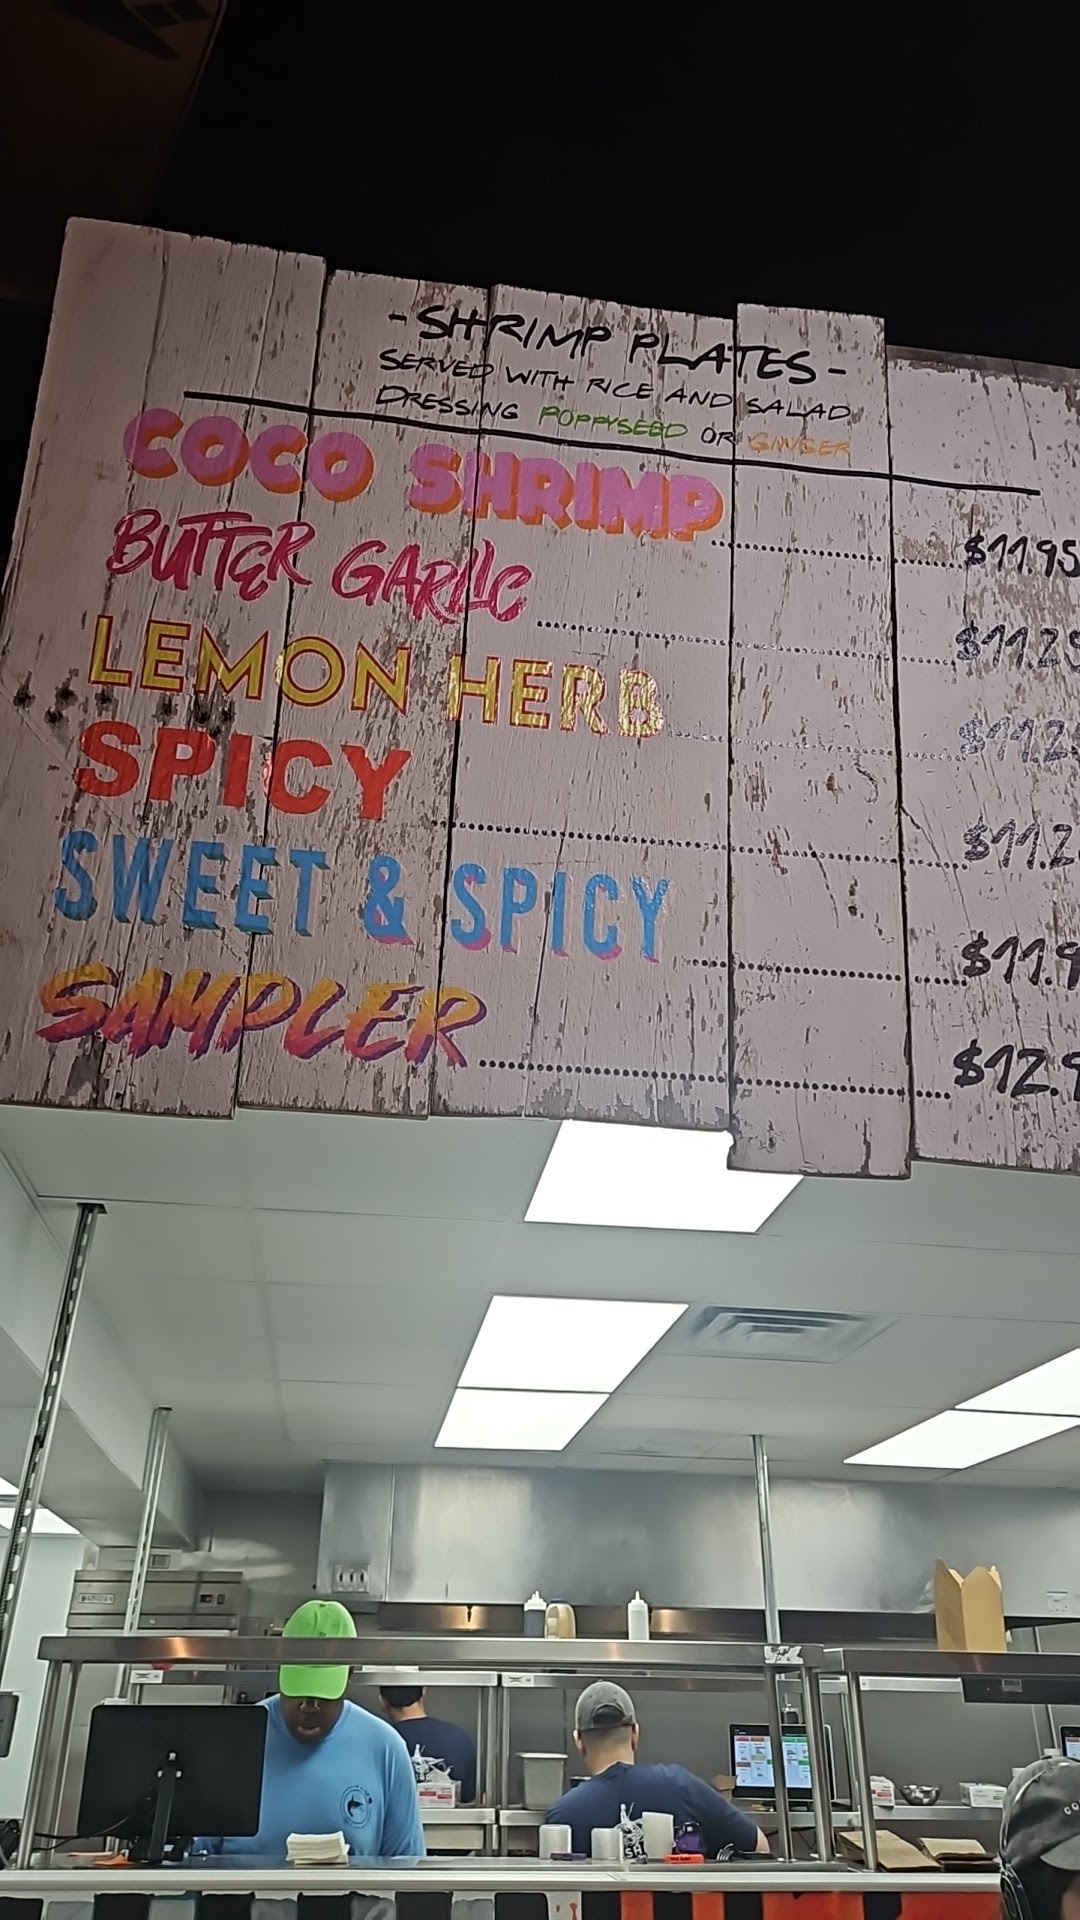 -SHRIMP PLATES-
SERVED WITH RICE AND SALAD
DRESSING POPPYSEED OR GINGER
COCO SHRIMP $11.95
BUTTER GARLIC $11.25
LEMON HERB $11.2
SPICY $11.2
SWEET & SPICY $11.9
SAMPLER $12.9